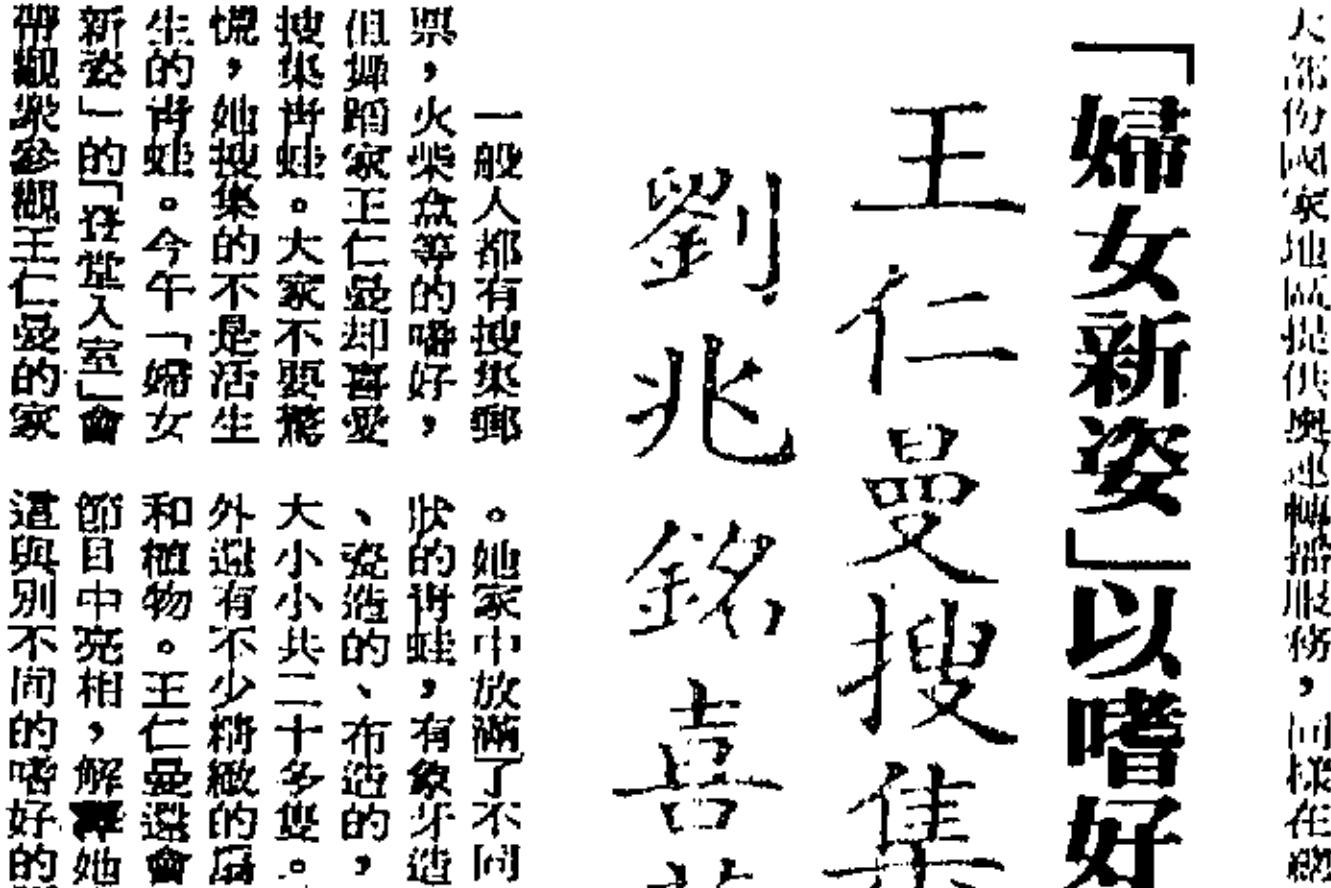 大部份國家地區提供奧運轉播服務，同樣在
「婦女新姿」以嗜好
王仁曼搜集
劉兆銘喜
一般人都有搜集郵
票，火柴盒等的嗜好，
但舞蹈家王仁曼却喜愛
搜集青蛙。大家不要驚
慌，她搜集的不是活生
生的青蛙。今午「婦女
新姿」的「登堂入室」會
帶觀衆參觀王仁曼的家
。她家中放滿了不同
狀的青蛙，有象牙造
、瓷造的、布造的，
大大小小共二十多隻。
外還有不少精緻的扇
和植物。王仁曼還會
節目中亮相，解釋她
這與別不同的嗜好的